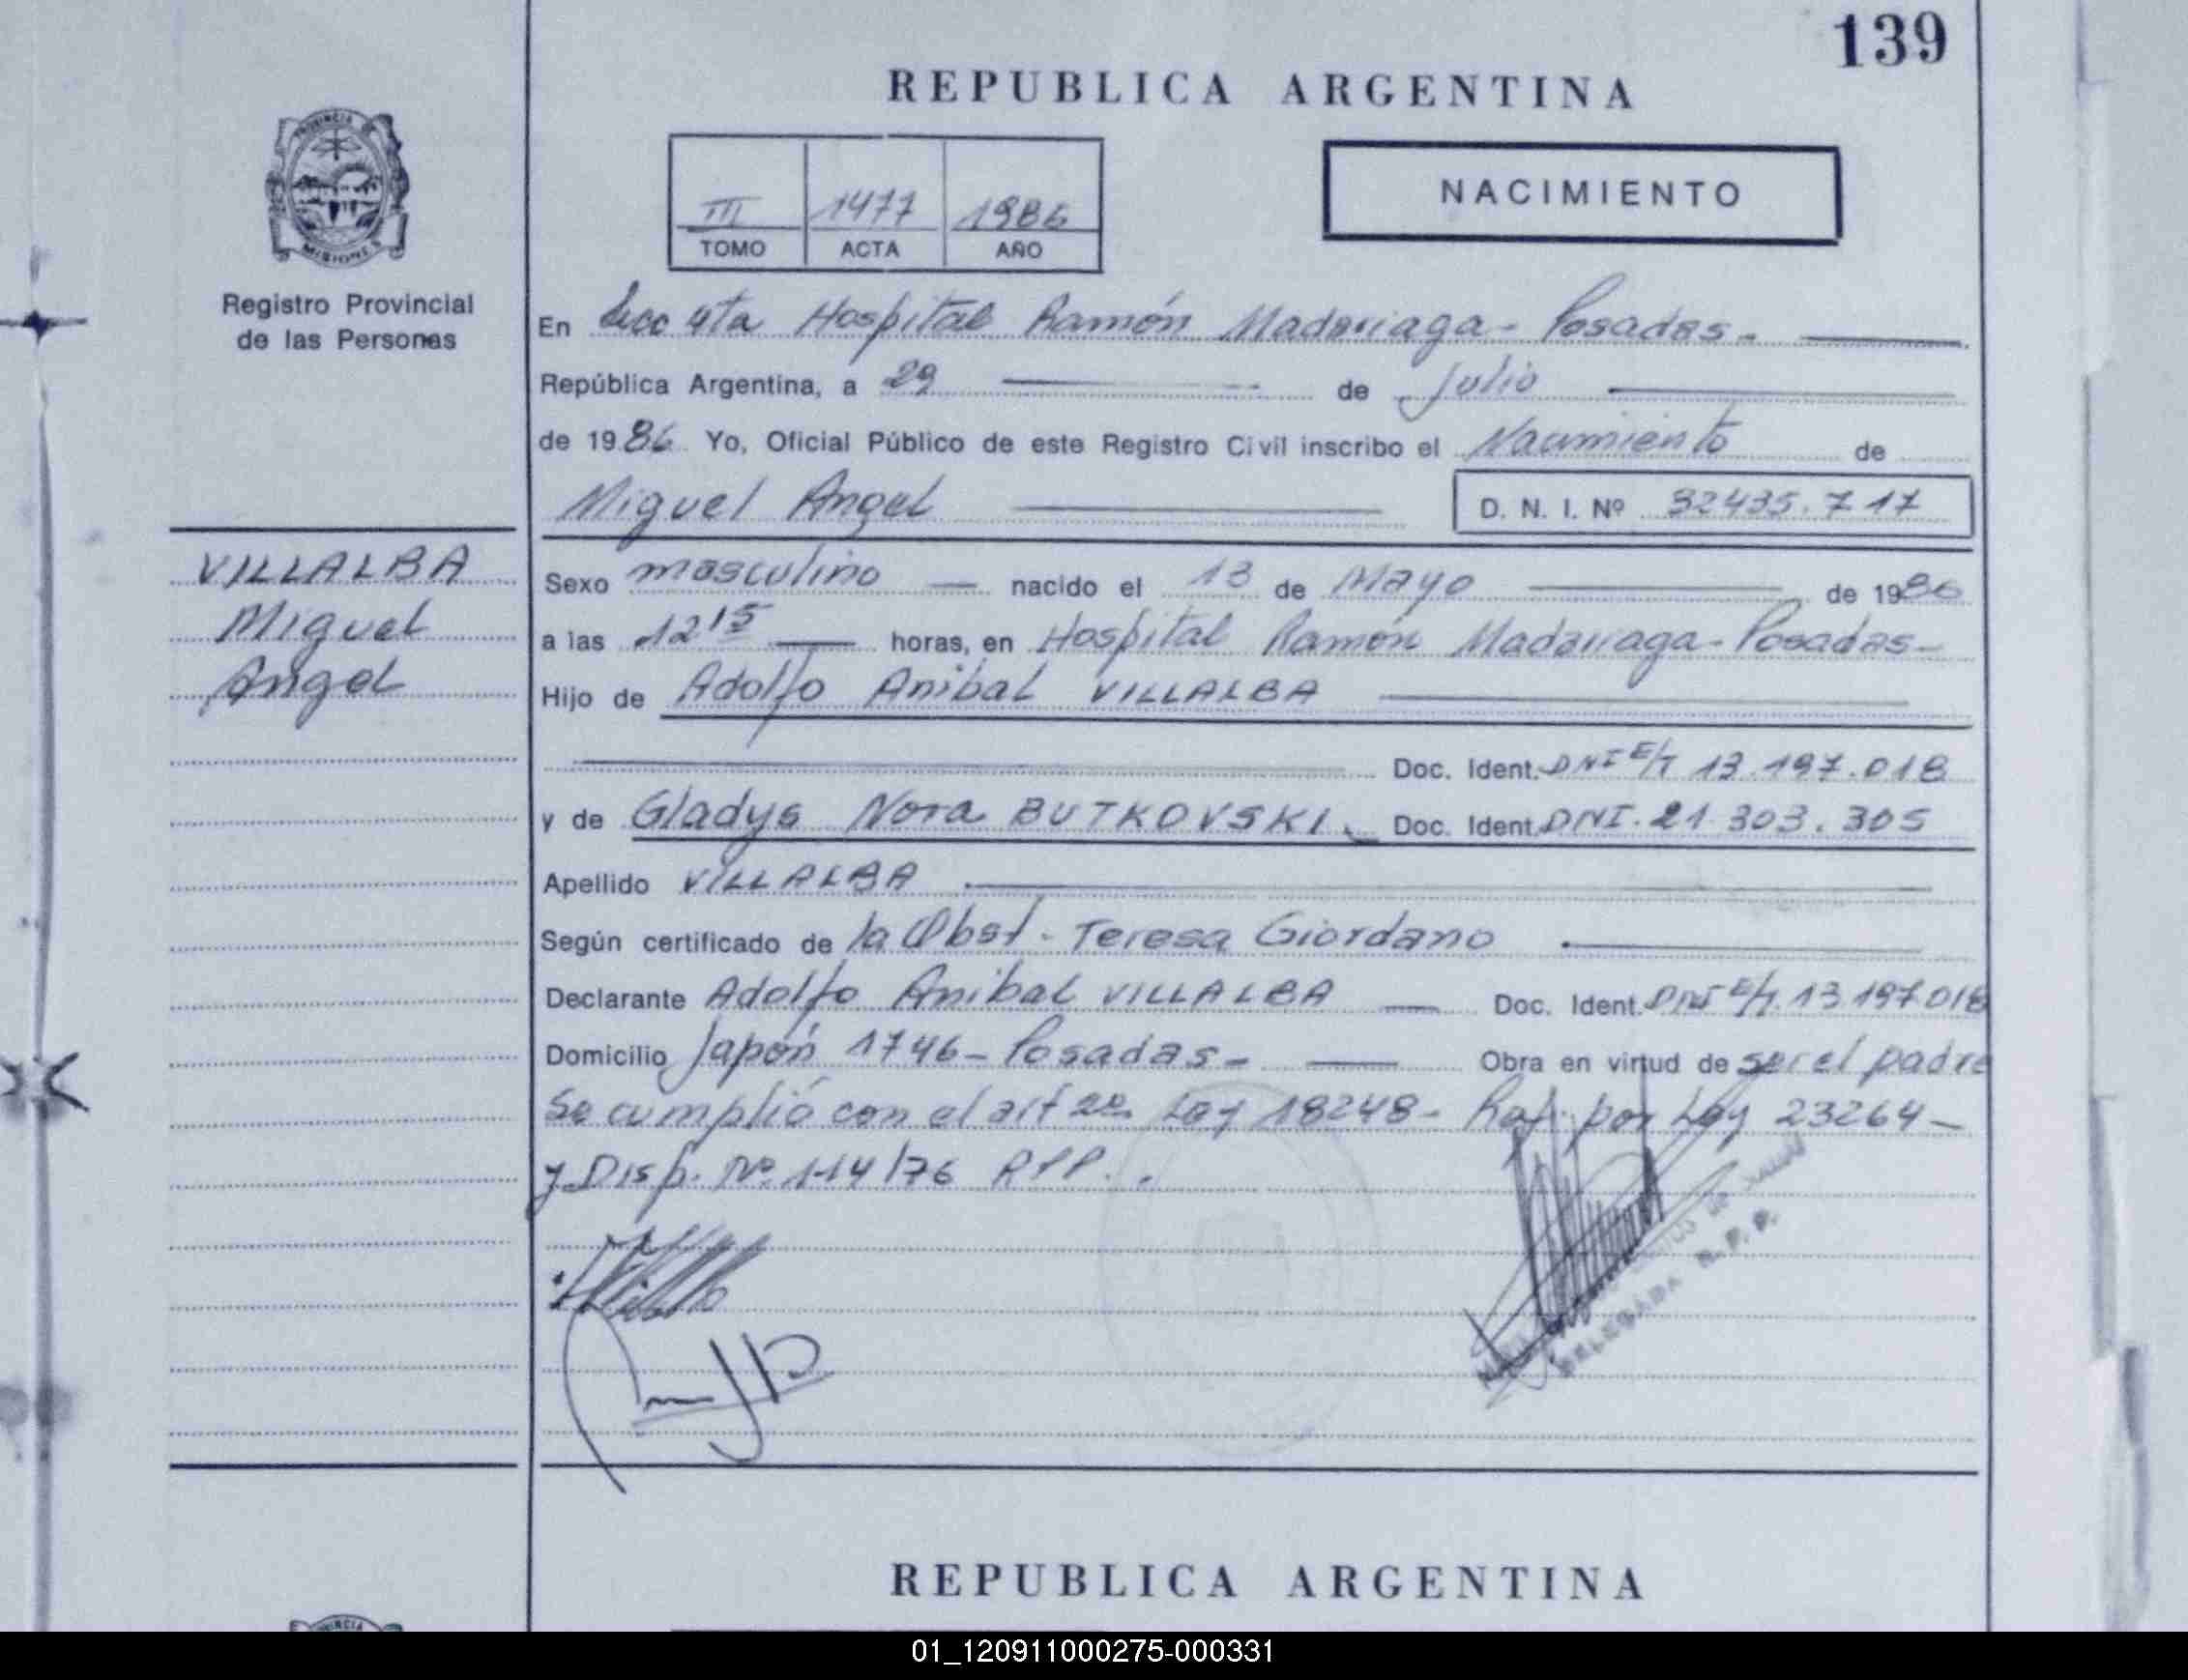 139
REPUBLICA ARGENTINA
PROVINCIA DE
MISIONES
Registro Provincial
de las Personas
III 1477 1986
TOMO ACTA AÑO
NACIMIENTO
En Secc 4ta Hospital Ramón Madariaga - Posadas -
República Argentina, a 29 de Julio
de 1986 Yo, Oficial Público de este Registro Civil inscribo el Nacimiento de
Miguel Angel D. N. I. Nº 32435.717
VILLALBA
Miguel
Angel
Sexo masculino nacido el 13 de Mayo de 1986
a las 12 15 horas, en Hospital Ramón Madariaga - Posadas -
Hijo de Adolfo Anibal VILLALBA
Doc. Ident. DNI E/T 13.197.018
y de Gladys Nora BUTKOVSKI Doc. Ident. DNI. 21.303.305
Apellido VILLALBA
Según certificado de la Obst - Teresa Giordano
Declarante Adolfo Anibal VILLALBA Doc. Ident. DNI E/T. 13.197.018
Domicilio Japón 1746 - Posadas - Obra en virtud de ser el padre
Se cumplió con el art 2º Ley 18248 - Ref. por Ley 23264 -
y Disp. Nº 114/76 RPP.
DELEGADA R. P. P.
REPUBLICA ARGENTINA
01_120911000275-000331